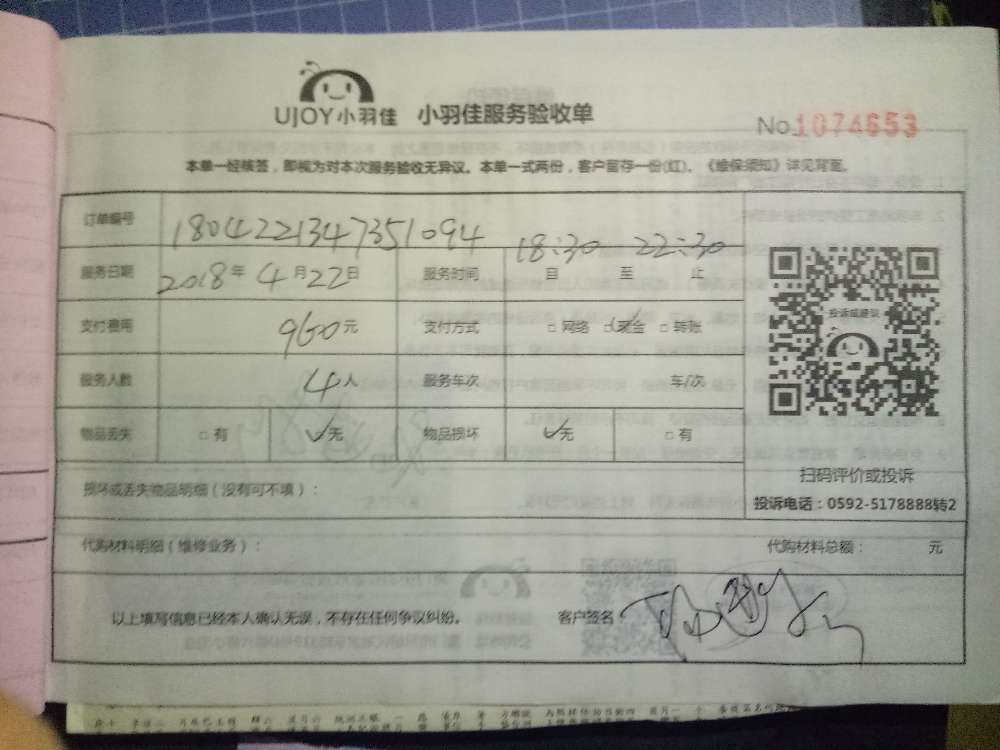 UJOY小羽佳 小羽佳服务验收单
No.1074653
本单一经核签，即视为对本次服务验收无异议。本单一式两份，客户留存一份(红)。《维保须知》详见背面。
订单编号 1804221347351094
服务日期 2018年4月22日 服务时间 18:30自 至22:30止
支付费用 960元 支付方式 □网络 ☑现金 □转账
服务人数 4人 服务车次 车/次
物品丢失 □有 ☑无 物品损坏 ☑无 □有
投诉或建议
扫码评价或投诉
投诉电话：0592-5178888转2
损坏或丢失物品明细（没有可不填）：
代购材料明细（维修业务）： 代购材料总额： 元
以上填写信息已经本人确认无误，不存在任何争议纠纷。 客户签名